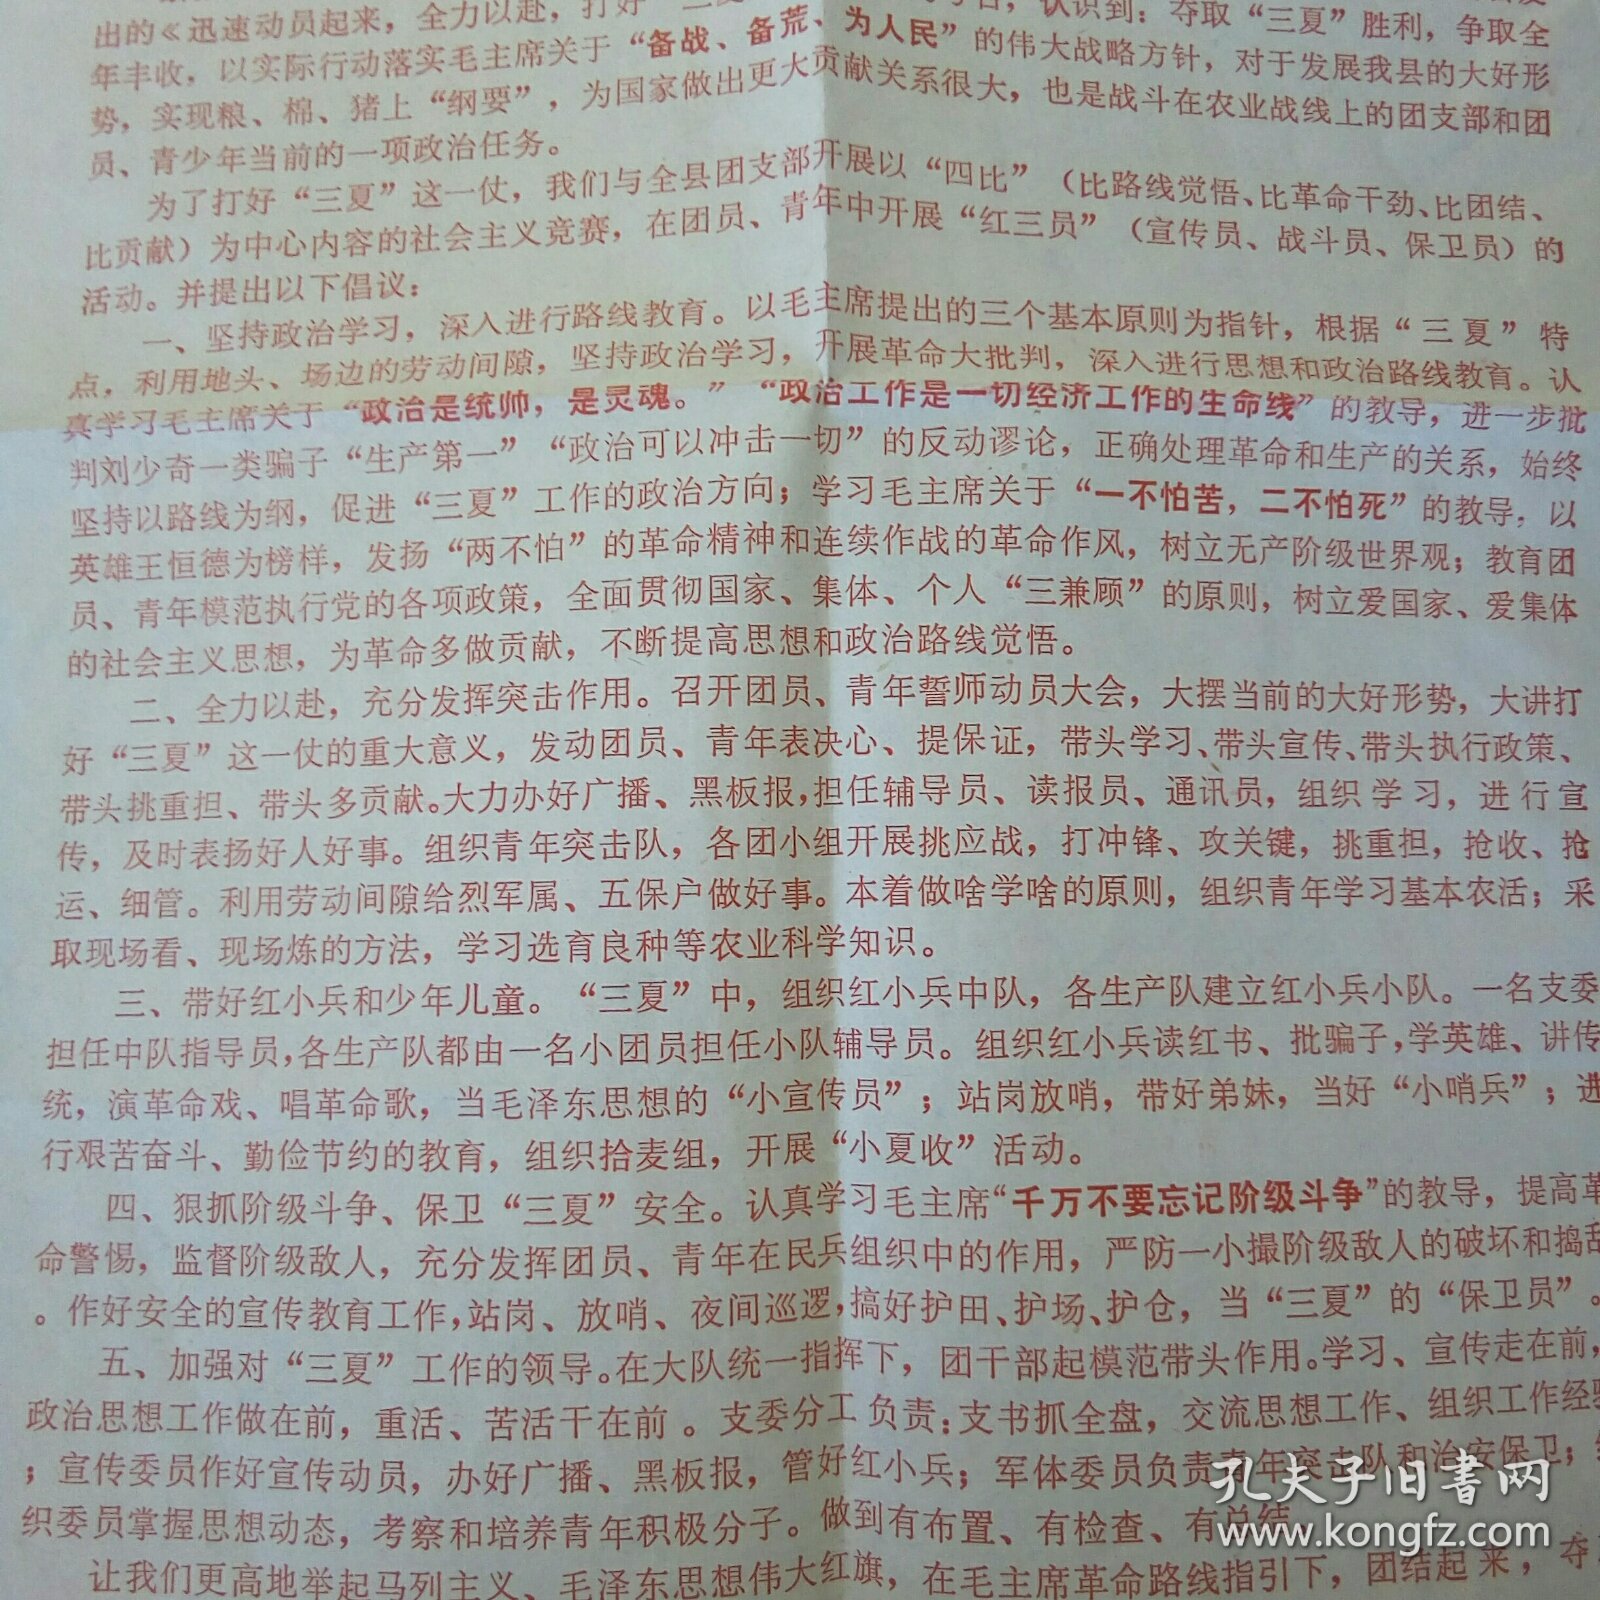 出的《迅速动员起来，全力以赴，打好“三夏
认识到：夺取“三夏”胜利，争取全
年丰收，以实际行动落实毛主席关于“备战、备荒、为人民”的伟大战略方针，对于发展我县的大好形
势，实现粮、棉、猪上“纲要”，为国家做出更大贡献关系很大，也是战斗在农业战线上的团支部和团
员、青少年当前的一项政治任务。
为了打好“三夏”这一仗，我们与全县团支部开展以“四比”（比路线觉悟、比革命干劲、比团结、
比贡献）为中心内容的社会主义竞赛，在团员、青年中开展“红三员”（宣传员、战斗员、保卫员）的
活动。并提出以下倡议：
一、坚持政治学习，深入进行路线教育。以毛主席提出的三个基本原则为指针，根据“三夏”特
点，利用地头、场边的劳动间隙，坚持政治学习，开展革命大批判，深入进行思想和政治路线教育。认
真学习毛主席关于“政治是统帅，是灵魂。”“政治工作是一切经济工作的生命线”的教导，进一步批
判刘少奇一类骗子“生产第一”“政治可以冲击一切”的反动谬论，正确处理革命和生产的关系，始终
坚持以路线为纲，促进“三夏”工作的政治方向；学习毛主席关于“一不怕苦，二不怕死”的教导，以
英雄王恒德为榜样，发扬“两不怕”的革命精神和连续作战的革命作风，树立无产阶级世界观；教育团
员、青年模范执行党的各项政策，全面贯彻国家、集体、个人“三兼顾”的原则，树立爱国家、爱集体
的社会主义思想，为革命多做贡献，不断提高思想和政治路线觉悟。
二、全力以赴，充分发挥突击作用。召开团员、青年誓师动员大会，大摆当前的大好形势，大讲打
好“三夏”这一仗的重大意义，发动团员、青年表决心、提保证，带头学习、带头宣传、带头执行政策、
带头挑重担、带头多贡献。大力办好广播、黑板报，担任辅导员、读报员、通讯员，组织学习，进行宣
传，及时表扬好人好事。组织青年突击队，各团小组开展挑应战，打冲锋、攻关键，挑重担，抢收、抢
运、细管。利用劳动间隙给烈军属、五保户做好事。本着做啥学啥的原则，组织青年学习基本农活；采
取现场看、现场炼的方法，学习选育良种等农业科学知识。
三、带好红小兵和少年儿童。“三夏”中，组织红小兵中队，各生产队建立红小兵小队。一名支委
担任中队指导员，各生产队都由一名小团员担任小队辅导员。组织红小兵读红书、批骗子，学英雄、讲传
统，演革命戏、唱革命歌，当毛泽东思想的“小宣传员”；站岗放哨，带好弟妹，当好“小哨兵”；进
行艰苦奋斗、勤俭节约的教育，组织拾麦组，开展“小夏收”活动。
四、狠抓阶级斗争、保卫“三夏”安全。认真学习毛主席“千万不要忘记阶级斗争”的教导，提高革
命警惕，监督阶级敌人，充分发挥团员、青年在民兵组织中的作用，严防一小撮阶级敌人的破坏和捣乱
。作好安全的宣传教育工作，站岗、放哨、夜间巡逻，搞好护田、护场、护仓，当“三夏”的“保卫员”。
五、加强对“三夏”工作的领导。在大队统一指挥下，团干部起模范带头作用。学习、宣传走在前，
政治思想工作做在前，重活、苦活干在前。支委分工负责：支书抓全盘，交流思想工作、组织工作经验
；宣传委员作好宣传动员，办好广播、黑板报，管好红小兵；军体委员负责青年突击队和治安保卫；组
织委员掌握思想动态，考察和培养青年积极分子。做到有布置、有检查、有总结
让我们更高地举起马列主义、毛泽东思想伟大红旗，在毛主席革命路线指引下，团结起来，夺
孔夫子旧书网
www.kongfz.com